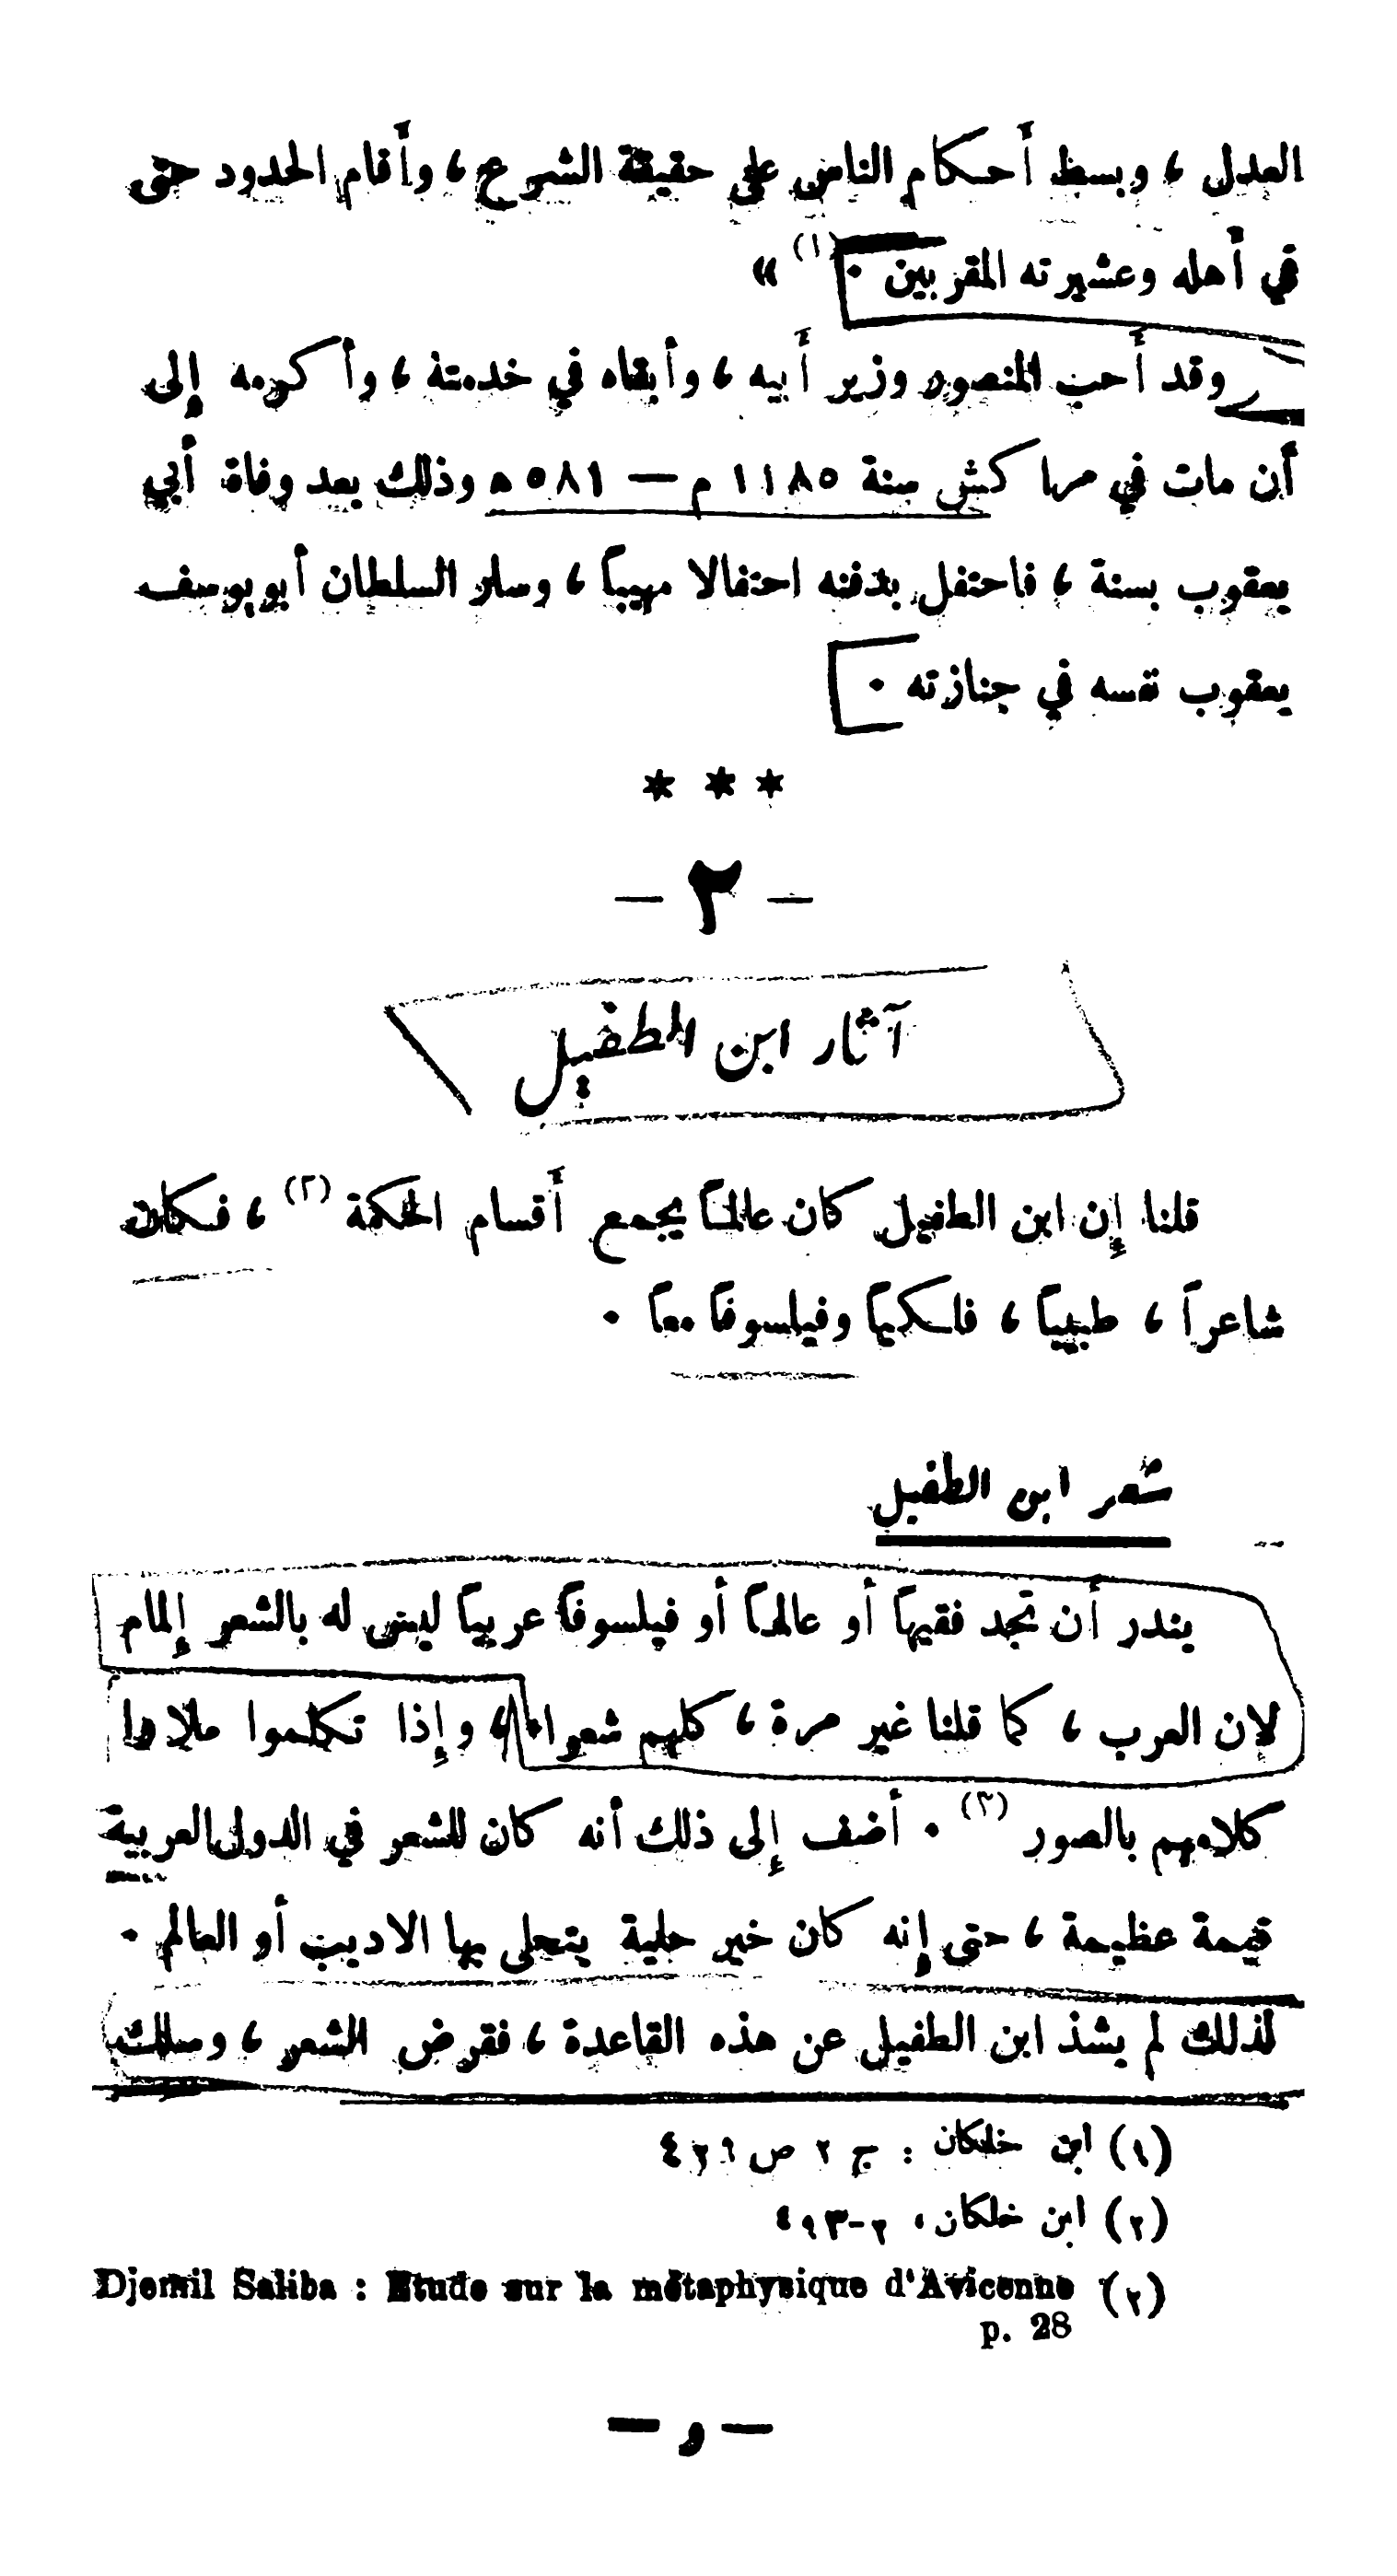 العدل ، وبسط أحكام الناس على حقيقة الشرع ، وأقام الحدود حتى
في أهله وعشيرته المقربين . (١) »
وقد أحب المنصور وزير أبيه ، وأبقاه في خدمته ، وأكرمه إلى
أن مات في مراكش سنة ١١٨٥ م — ٥٨١ ه وذلك بعد وفاة أبي
يعقوب بسنة ، فاحتفل بدفنه احتفالا مهيباً ، وسار السلطان أبو يوسف
يعقوب نفسه في جنازته .
* * *
– ٢ –
آثار ابن الطفيل
قلنا إن ابن الطفيل كان عالماً يجمع أقسام الحكمة (٢) ، فكان
شاعراً ، طبيباً ، فلكياً وفيلسوفاً معاً .
شعر ابن الطفيل
يندر أن تجد فقيهاً أو عالماً أو فيلسوفاً عربياً ليس له بالشعر إلمام
لان العرب ، كما قلنا غير مرة ، كلهم شعراء ، وإذا تكلموا ملاوا
كلامهم بالصور (٣) . أضف إلى ذلك أنه كان للشعر في الدول العربية
قيمة عظيمة ، حتى إنه كان خير حلية يتحلى بها الاديب أو العالم .
لذلك لم يشذ ابن الطفيل عن هذه القاعدة ، فقرض الشعر ، وسلك
(١) ابن خلكان : ج ٢ ص ٤٢٩
(٢) ابن خلكان ، ٢-٤٩٣
(٣) Djemil Saliba : Etude sur la métaphysique d'Avicenne
p. 28
— و —